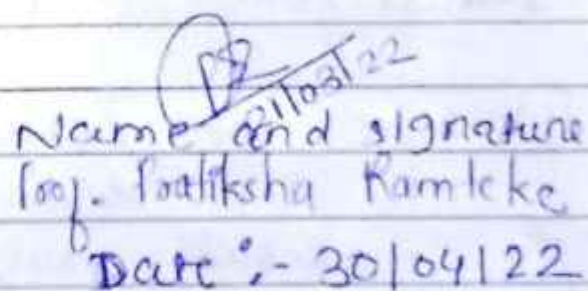 31/03/22
Name and signature
Prof. Pratiksha Ramteke
Date :- 30/04/22